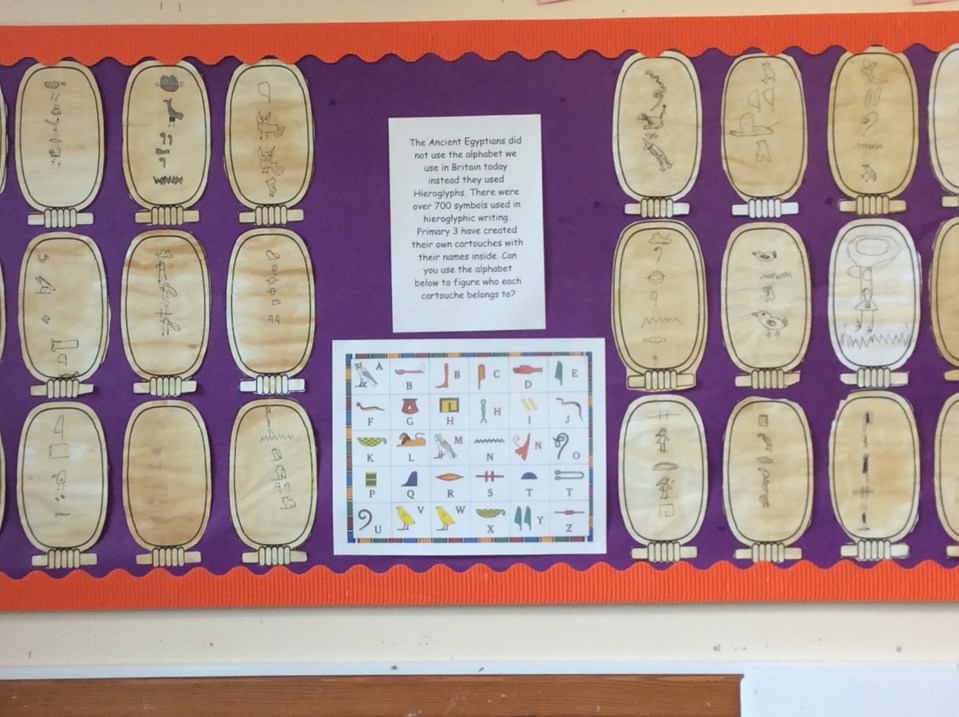 The Ancient Egyptians did
not use the alphabet we
use in Britain today
instead they used
Hieroglyphs. There were
over 700 symbols used in
hieroglyphic writing.
Primary 3 have created
their own cartouches with
their names inside. Can
you use the alphabet
below to figure who each
cartouche belongs to?
A B B C D E
F G H H I J
K L M N N O
P Q R S T T
U V W X Y Z